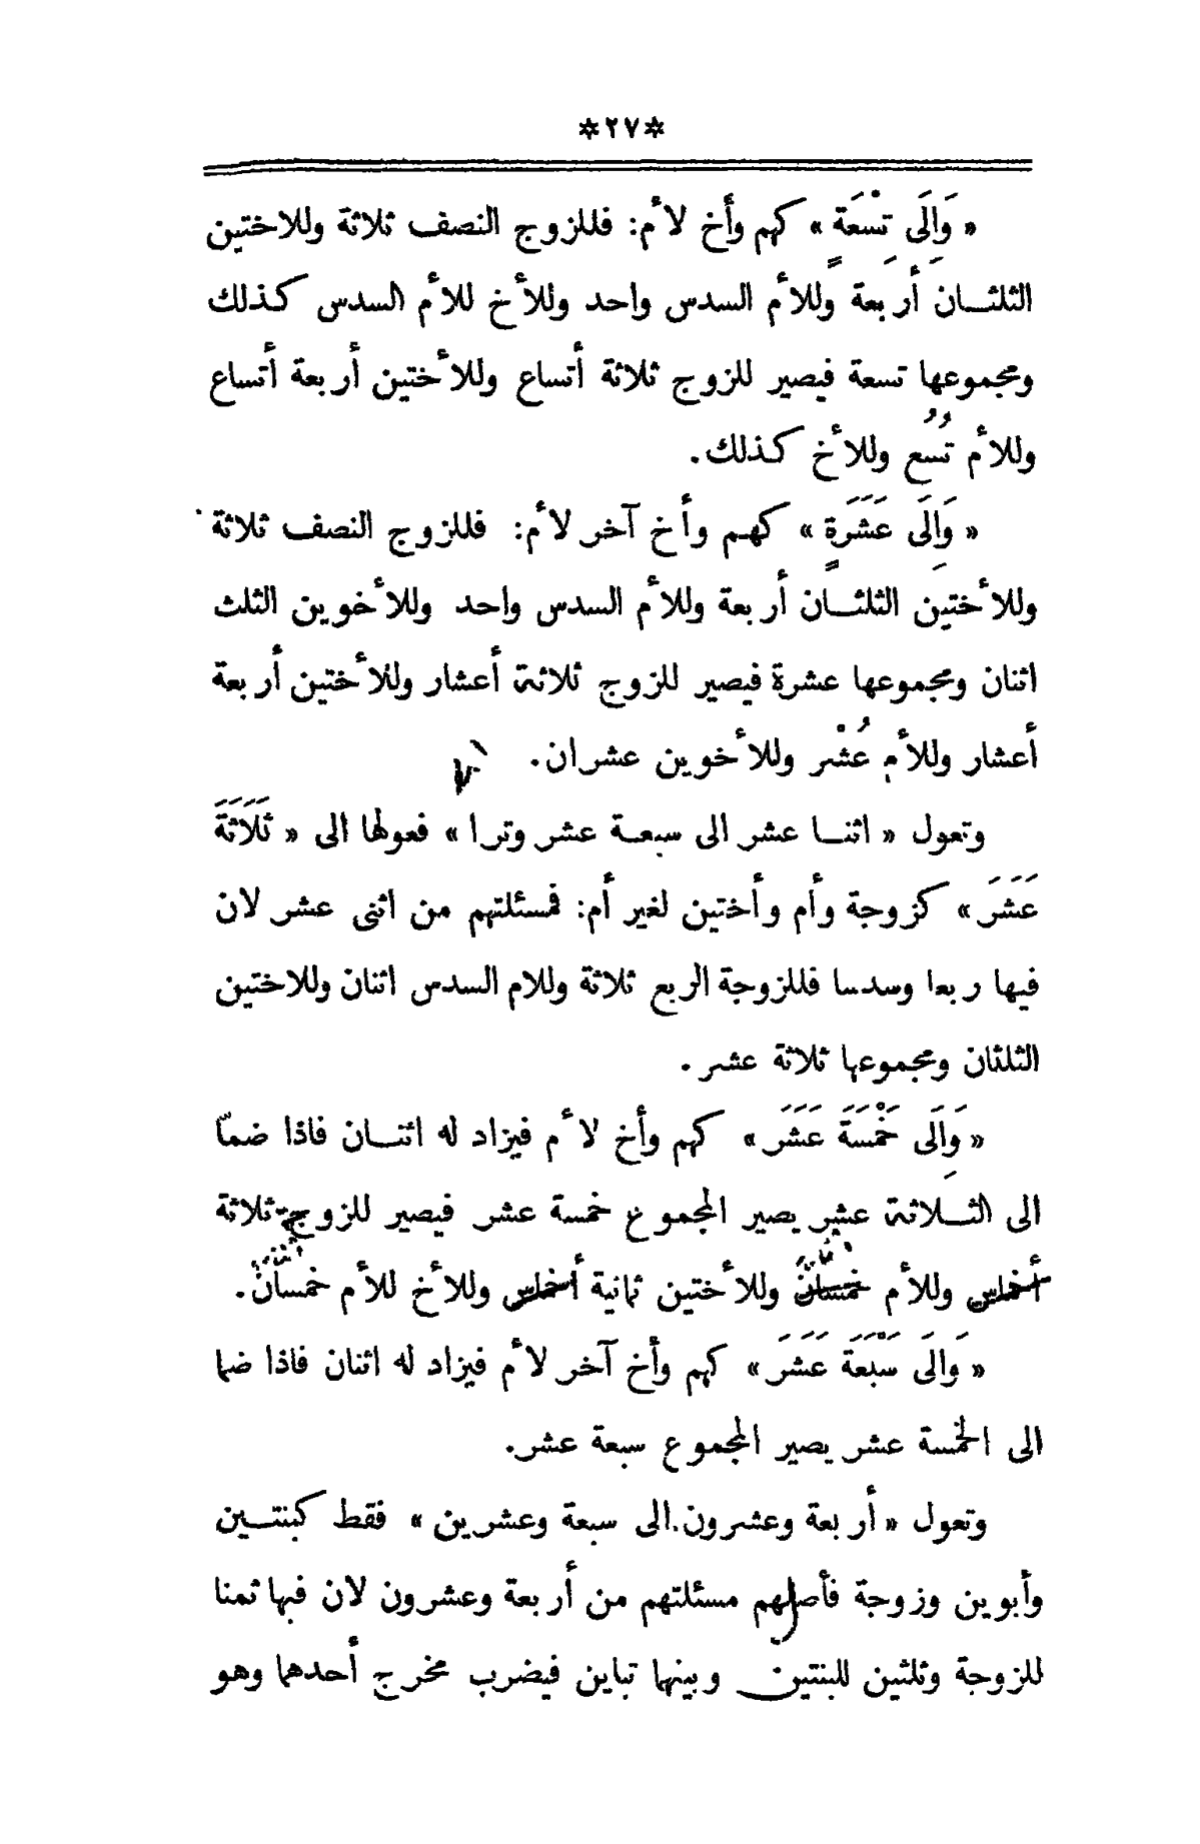 ✲٢٧✲
« وَإِلَى تِسْعَةٍ » كهم وأخ لأم: فللزوج النصف ثلاثة وللاختين
الثلثــان أربعة وللأم السدس واحد وللأخ للأم السدس كذلك
ومجموعها تسعة فيصير للزوج ثلاثة أتساع وللأختين أربعة أتساع
وللأم تُسُع وللأخ كذلك.
« وَإِلَى عَشَرَةٍ » كهم وأخ آخر لأم: فللزوج النصف ثلاثة
وللأختين الثلثــان أربعة وللأم السدس واحد وللأخوين الثلث
اثنان ومجموعها عشرة فيصير للزوج ثلاثة أعشار وللأختين أربعة
أعشار وللأم عُشْر وللأخوين عشران.
وتعول « اثنــا عشر الى سبعــة عشر وترا » فعولها الى « ثَلَاثَةَ
عَشَرَ » كزوجة وأم وأختين لغير أم: فمسئلتهم من اثنى عشر لان
فيها ربعا وسدسا فللزوجة الربع ثلاثة وللام السدس اثنان وللاختين
الثلثان ومجموعها ثلاثة عشر.
« وَإِلَى خَمْسَةَ عَشَرَ » كهم وأخ لأم فيزاد له اثنــان فاذا ضمّا
الى الثــلاثة عشر يصير المجموع خمسة عشر فيصير للزوجة ثلاثة
أخماس وللأم خمسان وللأختين ثمانية أخماس وللأخ للأم خمسان.
« وَإِلَى سَبْعَةَ عَشَرَ » كهم وأخ آخر لأم فيزاد له اثنان فاذا ضما
الى الخمسة عشر يصير المجموع سبعة عشر.
وتعول « أربعة وعشرون الى سبعة وعشرين » فقط كبنتــين
وأبوين وزوجة فأصلهم مسئلتهم من أربعة وعشرون لان فيها ثمنا
للزوجة وثلثين للبنتين وبينهما تباين فيضرب مخرج أحدهما وهو